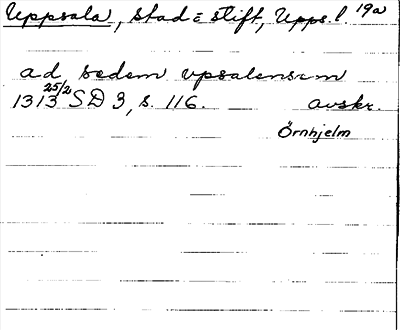 Uppsala, stad = stift, Upps. l. 19a
ad sedem vpsalensem
1313 25/2 SD 3, s. 116. avskr.
Örnhjelm